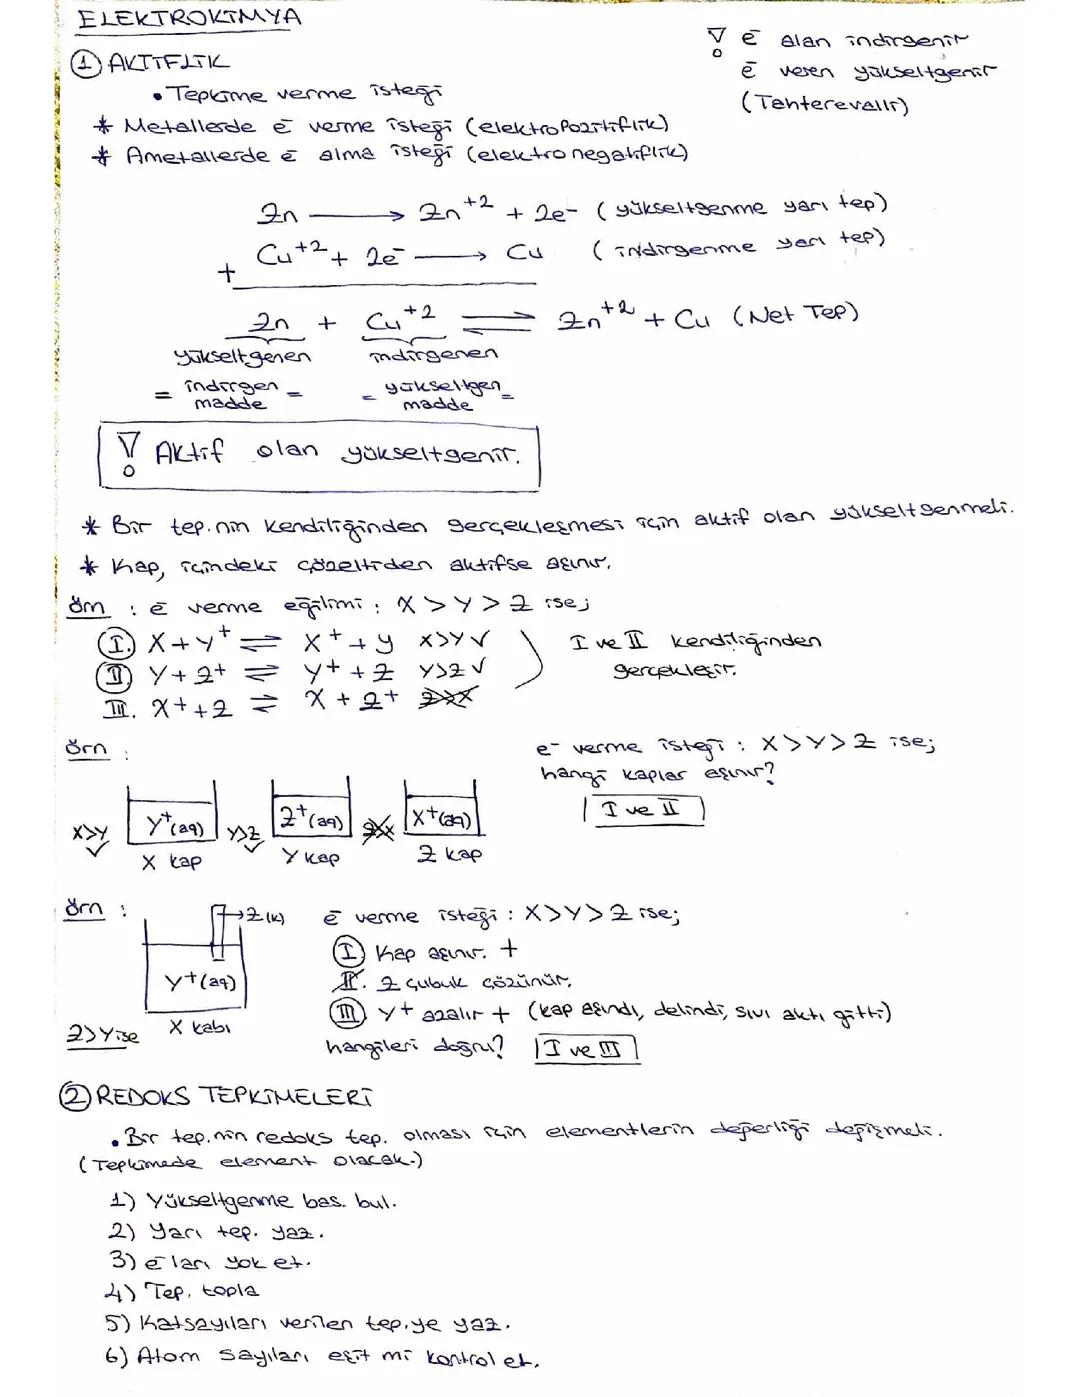 ELEKTROKİMYA
① AKTİFLİK
! ē alan indirgenir
ē veren yükseltgenir
(Tahterevalli)
• Tepkime verme isteği
* Metallerde ē verme isteği (elektropozitiflik)
* Ametallerde ē alma isteği (elektronegatiflik)
Zn → Zn+2 + 2e- (yükseltgenme yarı tep)
Cu+2 + 2ē → Cu (indirgenme yarı tep)
+
Zn + Cu+2 ⇌ Zn+2 + Cu (Net Tep)
yükseltgenen indirgenen
= indirgen madde = = yükseltgen madde =
! Aktif olan yükseltgenir.
* Bir tep.nin kendiliğinden gerçekleşmesi için aktif olan yükseltgenmeli.
* Kap, içindeki çözeltiden aktifse aşınır.
örn : ē verme eğilimi : X > Y > Z ise;
I. X + Y+ ⇌ X+ + Y X>Y ✓
II. Y + Z+ ⇌ Y+ + Z Y>Z ✓
III. X+ + Z ⇌ X + Z+ Z>X
I ve II kendiliğinden
gerçekleşir.
örn :
e- verme isteği : X > Y > Z ise;
hangi kaplar aşınır?
I ve II
X>Y ✓ Y+(aq) Y>Z ✓ Z+(aq) Z>X X+(aq)
X kap Y kap Z kap
örn :
→ Z(k)
Y+(aq)
X kabı
Z>Y ise
ē verme isteği : X>Y>Z ise;
I Kap aşınır. +
II. Z çubuk çözünür.
III Y+ azalır + (kap aşındı, delindi, sıvı aktı gitti)
hangileri doğru? I ve III
② REDOKS TEPKİMELERİ
• Bir tep.nin redoks tep. olması için elementlerin değerliği değişmeli.
(Tepkimede element olacak.)
1) Yükseltgenme bas. bul.
2) Yarı tep. yaz.
3) ē ları yok et.
4) Tep. topla
5) Katsayıları verilen tep.ye yaz.
6) Atom sayıları eşit mi kontrol et.